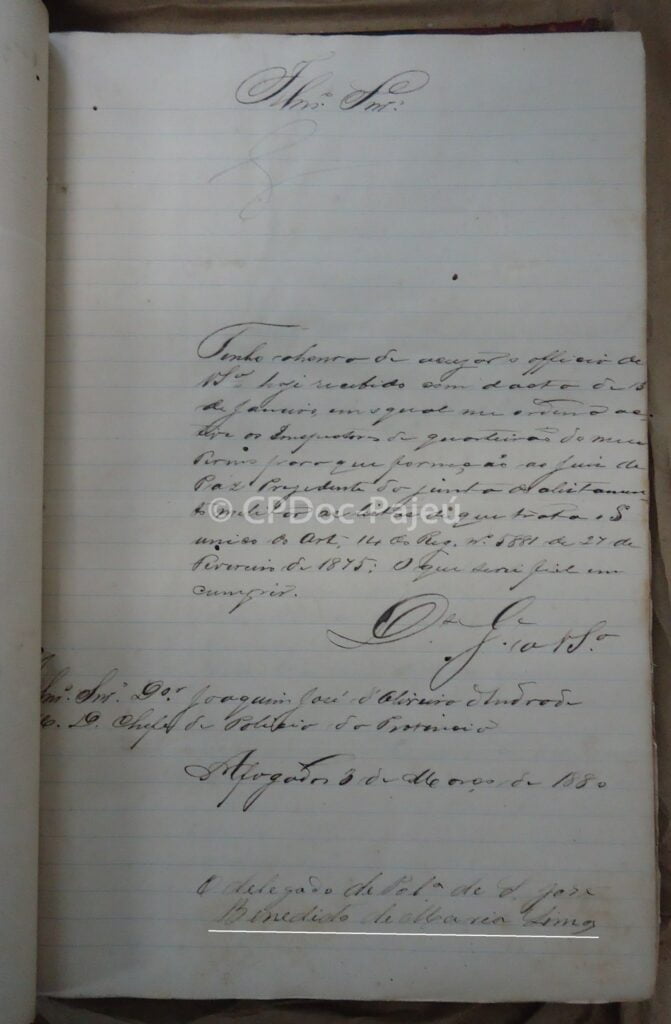 Illmº. Snrº.
Tenho ahonra de accusar o officio de
VSª. hoje recebido com dacta de 13
de Janeiro, em oqual me ordena
os Inspectores de quarteirão do meu
para que ao Juiz de
Paz Prezidente da junta de alistamen
to militar as listas de que trata o §
unico do Art. 14 do Reg. nº. 5881 de 27 de
Fevereiro de 1875: O que serei fiel em
cumprir.
Ds. Ge.
a VSª.
Illmº. Snrº. Dor. Joaquim José d'Oliveira d'Andrade
M. D. Chefe de Policia da Provincia
Afogados 3 de Março de 1880
O delegado de Polª. de S. José
Benedicto de Maria Lima
© CPDoc-Pajeú